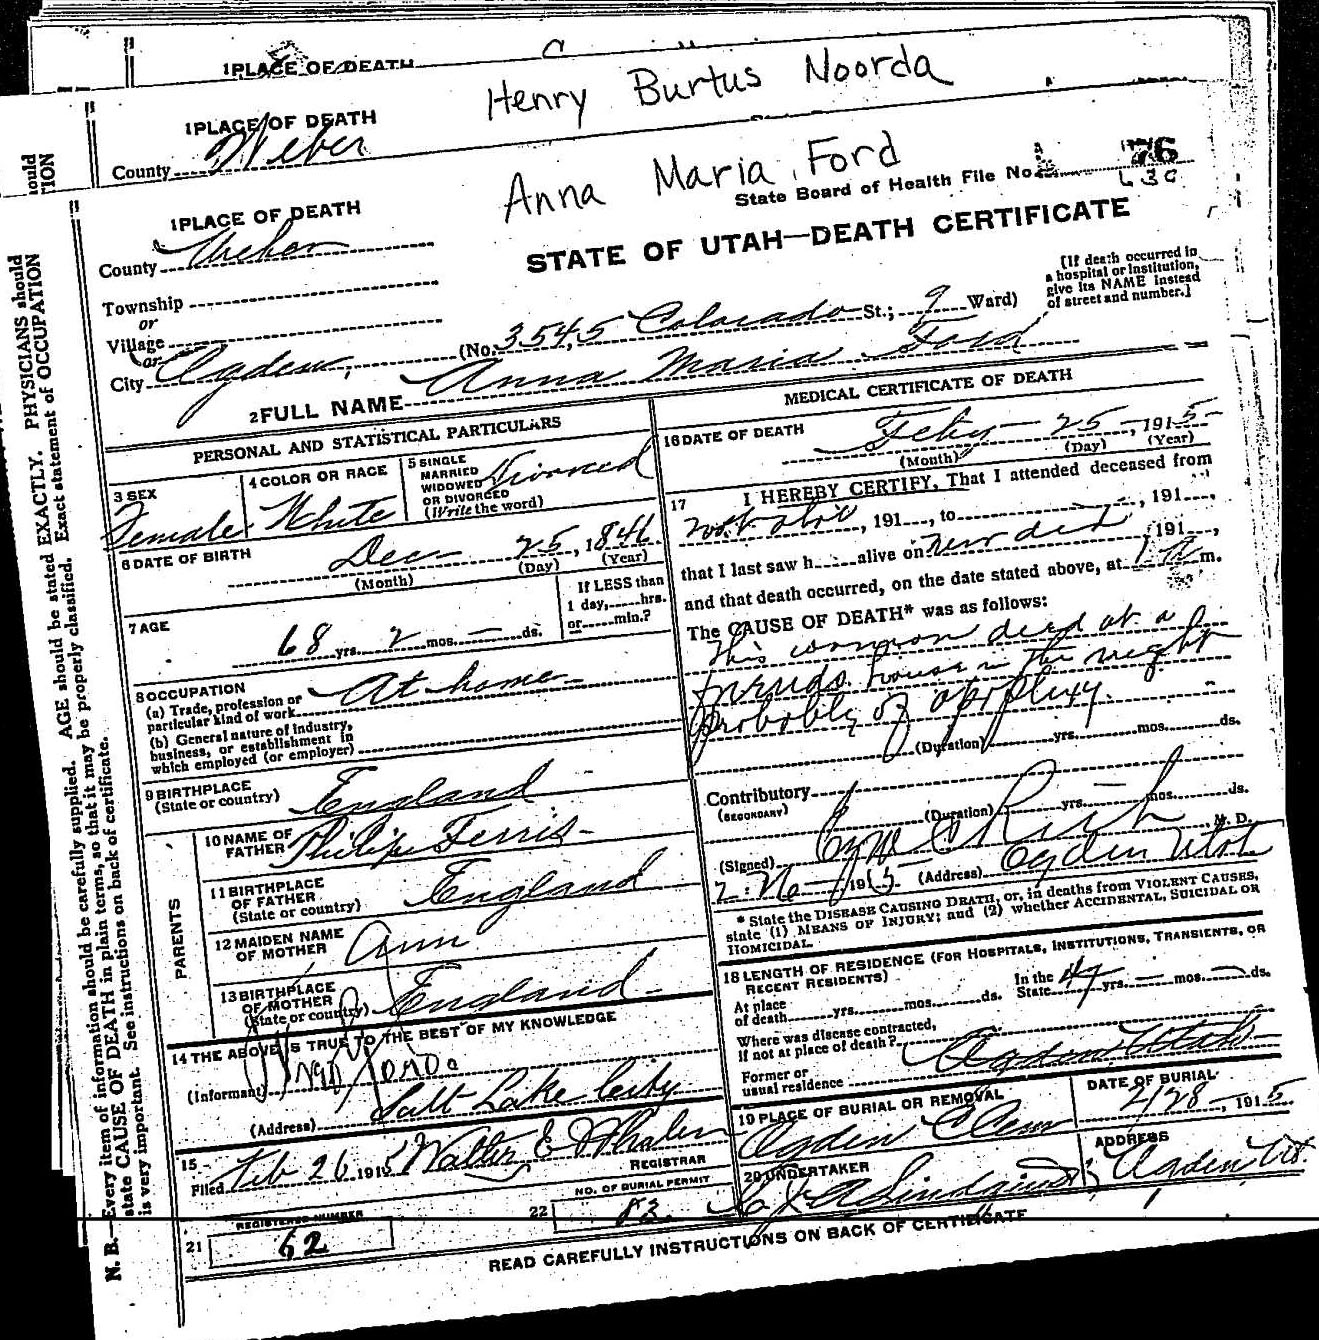 1 PLACE OF DEATH
Henry Burtus Noorda
1 PLACE OF DEATH
County Weber
Anna Maria Ford
76
State Board of Health File No.
630
1 PLACE OF DEATH
STATE OF UTAH—DEATH CERTIFICATE
County Weber
Township
or
Village
or
City Ogden, (No. 3545, Colorado St.; 9 Ward)
[If death occurred in
a hospital or institution,
give its NAME instead
of street and number.]
2 FULL NAME Anna Maria Ford
PERSONAL AND STATISTICAL PARTICULARS
3 SEX
Female
4 COLOR OR RACE
White
5 SINGLE
MARRIED
WIDOWED
OR DIVORCED
(Write the word)
6 DATE OF BIRTH
Dec 25, 1846
(Month) (Day) (Year)
7 AGE
68 yrs. 2 mos. — ds.
If LESS than
1 day, hrs.
or min.?
8 OCCUPATION
(a) Trade, profession or
particular kind of work At home
(b) General nature of industry,
business, or establishment in
which employed (or employer)
9 BIRTHPLACE
(State or country) England
PARENTS
10 NAME OF
FATHER Philip Ferris
11 BIRTHPLACE
OF FATHER
(State or country) England
12 MAIDEN NAME
OF MOTHER Ann
13 BIRTHPLACE
OF MOTHER
(State or country) England
14 THE ABOVE IS TRUE TO THE BEST OF MY KNOWLEDGE
(Informant)
(Address) Salt Lake City
15
Filed Feb 26 1915 Walter E Whalen
REGISTRAR
REGISTERED NUMBER
21 62
NO. OF BURIAL PERMIT
22 83
MEDICAL CERTIFICATE OF DEATH
16 DATE OF DEATH
Feby 25, 1915
(Month) (Day) (Year)
17 I HEREBY CERTIFY, That I attended deceased from
, 191 , to , 191 ,
that I last saw h alive on never did, 191 ,
and that death occurred, on the date stated above, at 1 a m.
The CAUSE OF DEATH* was as follows:
This woman died at a
friends house in the night
probably of apoplexy.
(Duration) yrs. mos. ds.
Contributory
(SECONDARY)
(Duration) yrs. mos. ds.
(Signed) Rich M. D.
2-26- 1915 (Address) Ogden Utah
* State the DISEASE CAUSING DEATH, or, in deaths from VIOLENT CAUSES,
state (1) MEANS OF INJURY; and (2) whether ACCIDENTAL, SUICIDAL OR
HOMICIDAL.
18 LENGTH OF RESIDENCE (FOR HOSPITALS, INSTITUTIONS, TRANSIENTS, OR
RECENT RESIDENTS)
At place
of death yrs. mos. ds.
In the
State 47 yrs. — mos. — ds.
Where was disease contracted,
if not at place of death?
Former or
usual residence Ogden, Utah
19 PLACE OF BURIAL OR REMOVAL
Ogden Cem
DATE OF BURIAL
2/28, 1915
20 UNDERTAKER
Lindquist
ADDRESS
Ogden Ut
READ CAREFULLY INSTRUCTIONS ON BACK OF CERTIFICATE
N. B.—Every item of information should be carefully supplied. AGE should be stated EXACTLY. PHYSICIANS should
state CAUSE OF DEATH in plain terms, so that it may be properly classified. Exact statement of OCCUPATION
is very important. See instructions on back of certificate.